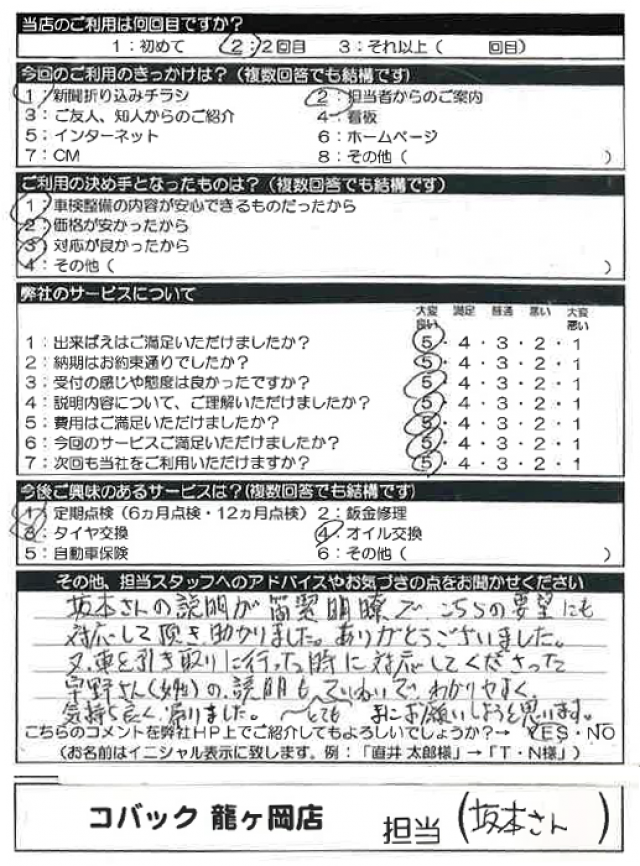 当店のご利用は何回目ですか?
1:初めて 2:2回目 3:それ以上( 回目)
今回のご利用のきっかけは?(複数回答でも結構です)
1:新聞折り込みチラシ 2:担当者からのご案内
3:ご友人、知人からのご紹介 4:看板
5:インターネット 6:ホームページ
7:CM 8:その他( )
ご利用の決め手となったものは?(複数回答でも結構です)
1:車検整備の内容が安心できるものだったから
2:価格が安かったから
3:対応が良かったから
4:その他( )
弊社のサービスについて
大変良い 満足 普通 悪い 大変悪い
1:出来ばえはご満足いただけましたか? 5・4・3・2・1
2:納期はお約束通りでしたか? 5・4・3・2・1
3:受付の感じや態度は良かったですか? 5・4・3・2・1
4:説明内容について、ご理解いただけましたか? 5・4・3・2・1
5:費用はご満足いただけましたか? 5・4・3・2・1
6:今回のサービスご満足いただけましたか? 5・4・3・2・1
7:次回も当社をご利用いただけますか? 5・4・3・2・1
今後ご興味のあるサービスは?(複数回答でも結構です)
1:定期点検(6ヵ月点検・12ヵ月点検) 2:鈑金修理
3:タイヤ交換 4:オイル交換
5:自動車保険 6:その他( )
その他、担当スタッフへのアドバイスやお気づきの点をお聞かせください
坂本さんの説明が簡潔明瞭で、こちらの要望にも
対応して頂き助かりました。ありがとうございました。
又、車を引き取りに行った時に対応してくださった
宇野さん(女性)の説明もていねいで、わかりやすく、
気持ち良く帰りました。 とても またお願いしようと思います。
こちらのコメントを弊社HP上でご紹介してもよろしいでしょうか?→ YES・NO
(お名前はイニシャル表示に致します。例:「直井 太郎様」→「T・N様」)
コバック 龍ヶ岡店 担当(坂本さん )